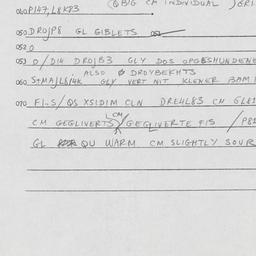 040 P147, L8KP3
(QBIG CM INDIVIDUAL) GRI
050 DROJP8 GL GIBLETS 051
052 0
053 0/D14 DROJB3 GLY DOS OPGESHUNDENE
ALSO Ø DROYBEKHTS
060 S+MAJL8J4K GLY VERT NIT KLENER BAMI
070 FI-S/QS XSIDIM CLN DREHL83 CM GL81
CM GEGLIVERTS CM GEGLIVERTE FIS /P81
GL QU WARM CM SLIGHTLY SOUR